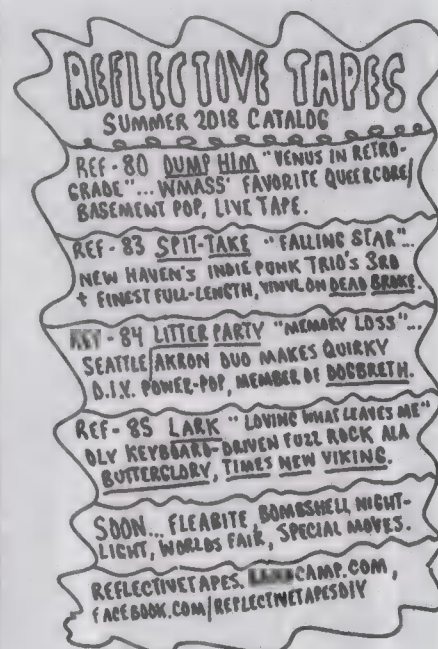 REFLECTIVE TAPES
SUMMER 2018 CATALOG
REF - 80 DUMP HIM "VENUS IN RETRO-
GRADE"... WMASS' FAVORITE QUEERCORE/
BASEMENT POP, LIVE TAPE.
REF - 83 SPIT-TAKE "FALLING STAR"...
NEW HAVEN'S INDIE PUNK TRIO'S 3RD
+ FINEST FULL-LENGTH, VINYL ON DEAD BROKE.
- 84 LITTER PARTY "MEMORY LOSS"...
SEATTLE/AKRON DUO MAKES QUIRKY
D.I.Y. POWER-POP, MEMBER OF DOGBRETH.
REF - 85 LARK "LOVING WHAT LEAVES ME"
OLY KEYBOARD-DRIVEN FUZZ ROCK ALA
BUTTERGLORY, TIMES NEW VIKING.
SOON... FLEABITE, BOMBSHELL NIGHT-
LIGHT, WORLDS FAIR, SPECIAL MOVES.
REFLECTIVETAPES. CAMP.COM,
FACEBOOK.COM/REFLECTIVETAPESDIY